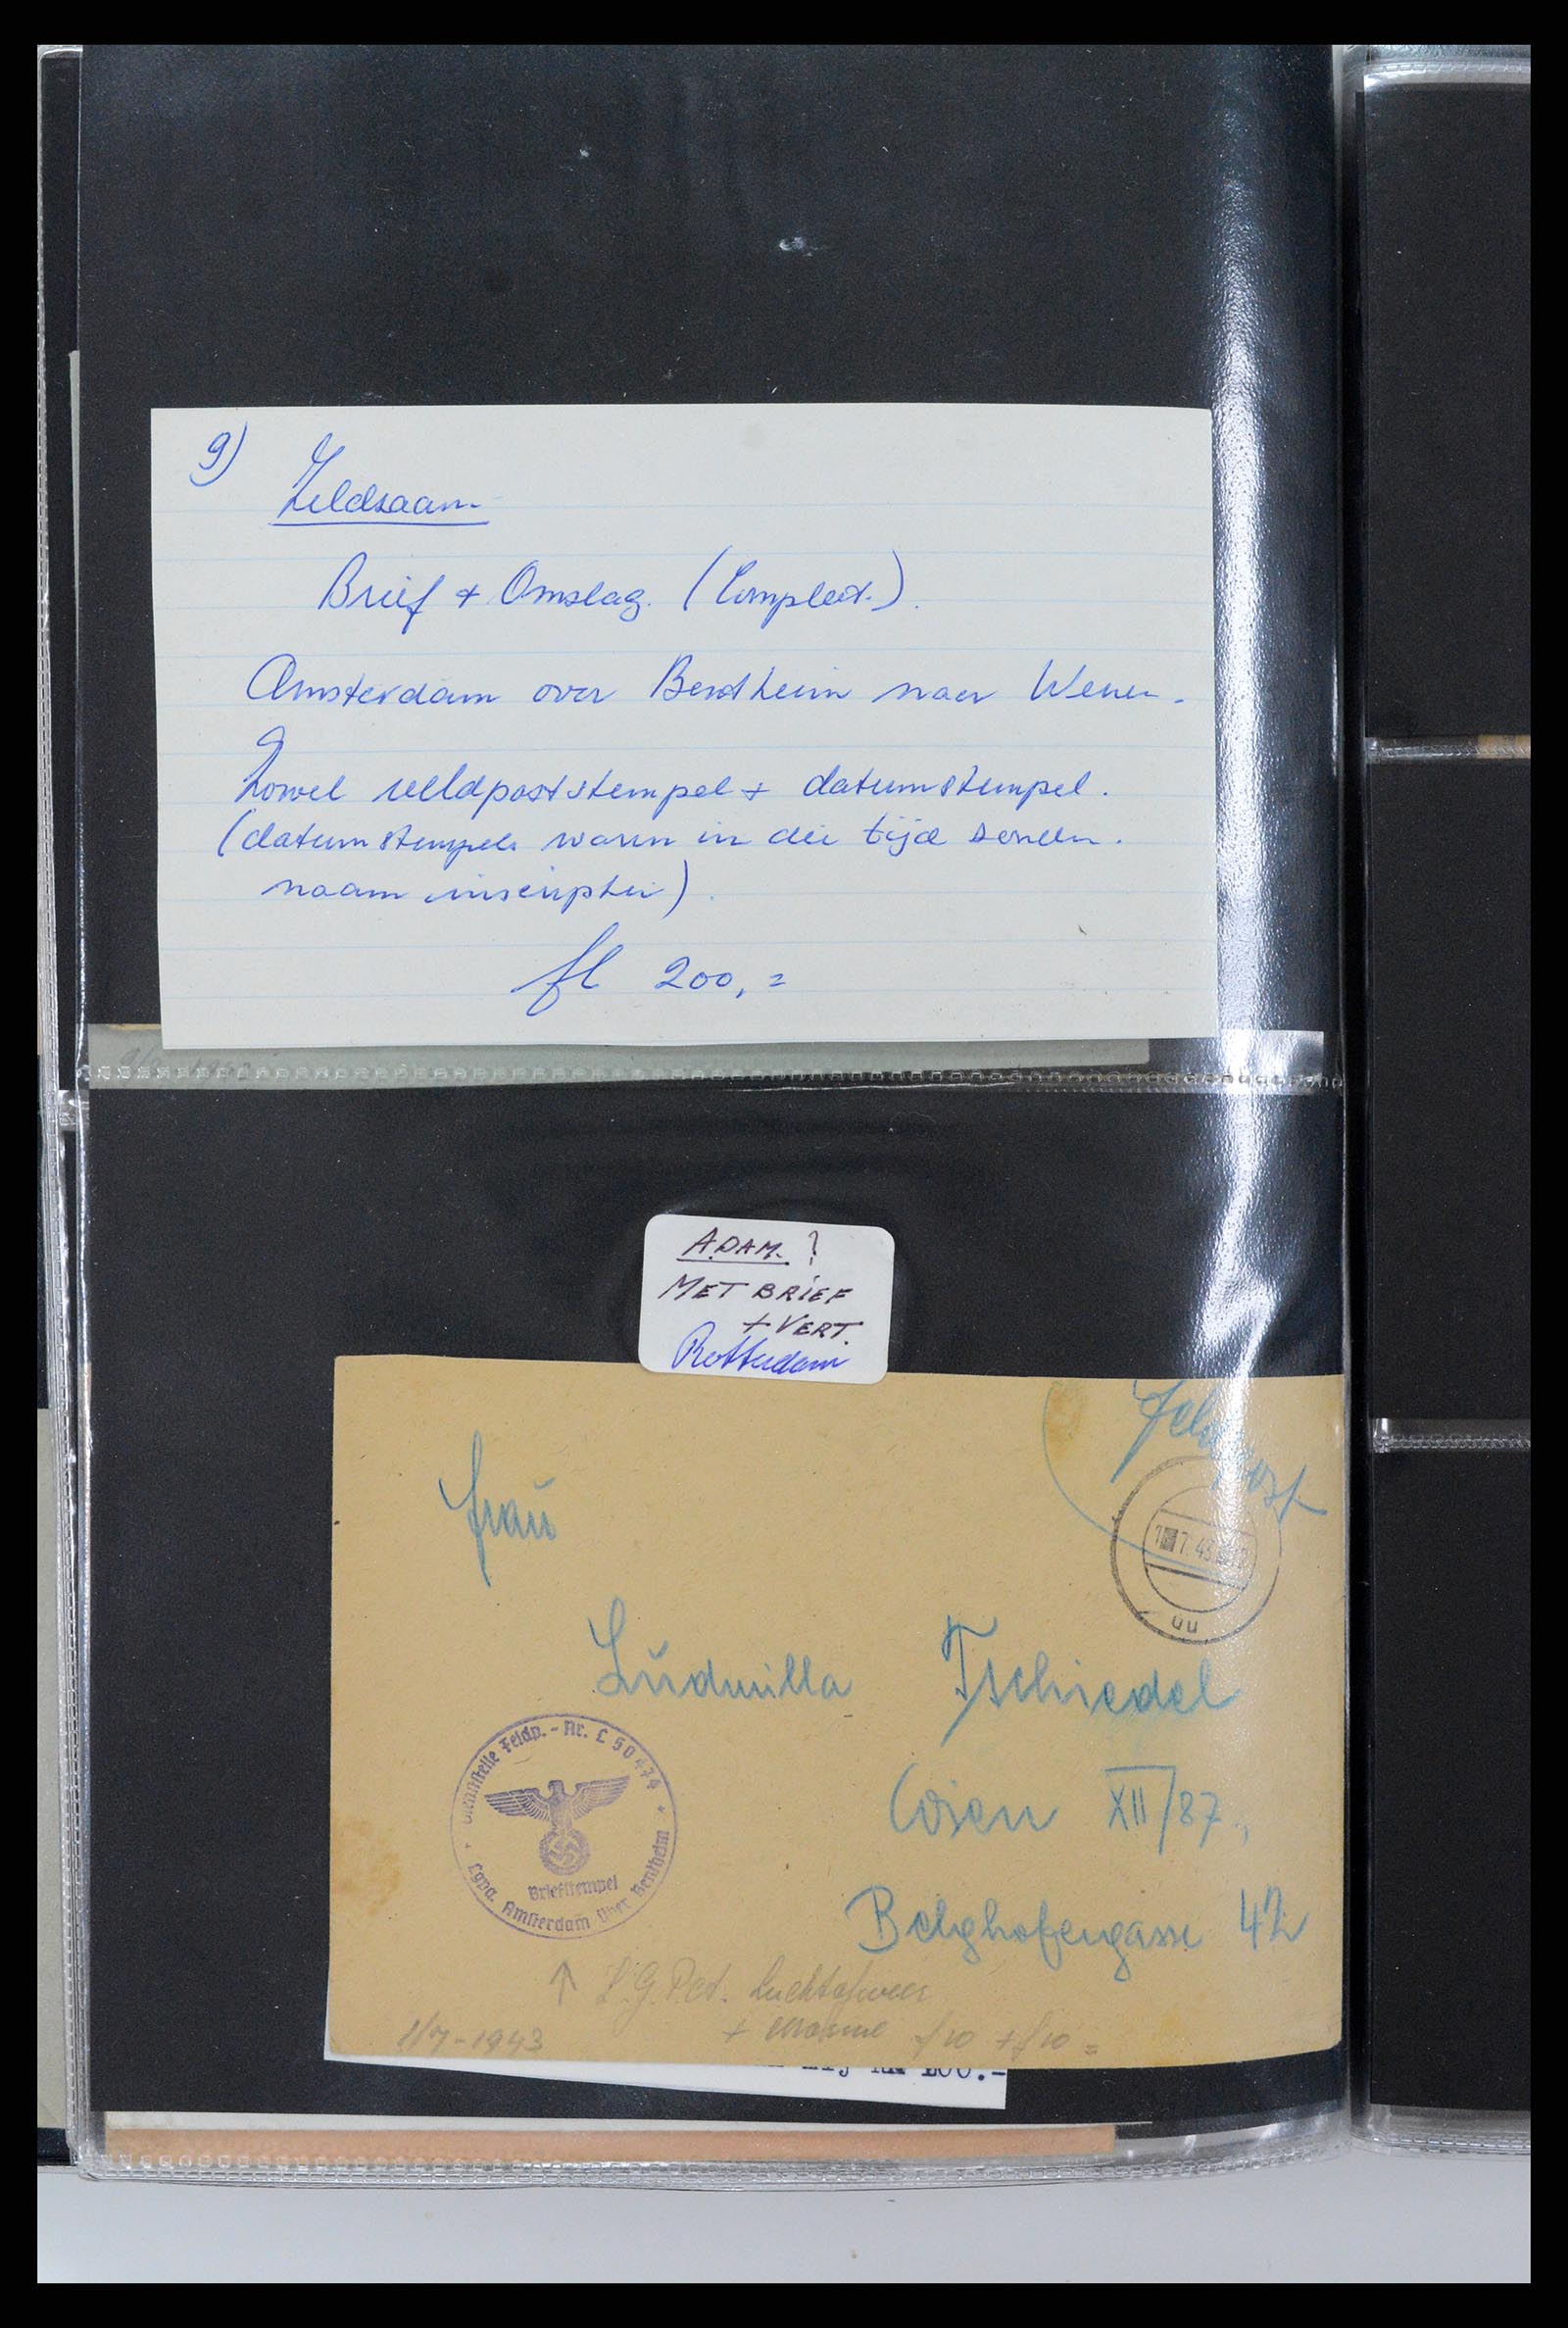 9)
Zeldzaam
Brief + Omslag. (Compleet.).
Amsterdam over Bentheim naar Wenen.
Zowel veldpoststempel + datumstempel.
(datumstempels waren in die tijd zonder.
naam inscriptie).
fl 200,=
A.DAM. ?
MET BRIEF
+ VERT.
Rotterdam
Feldpost
Frau
7.43
üü
Ludmilla Tschiedel
Dienststelle Feldp.-Nr. L 50474
Briefstempel
Lgpa. Amsterdam über Bentheim
Wien XII/87,
Belghofergasse 42
↑ L.G.P.A.
1/7-1943 + f10 + f10 =
200.-